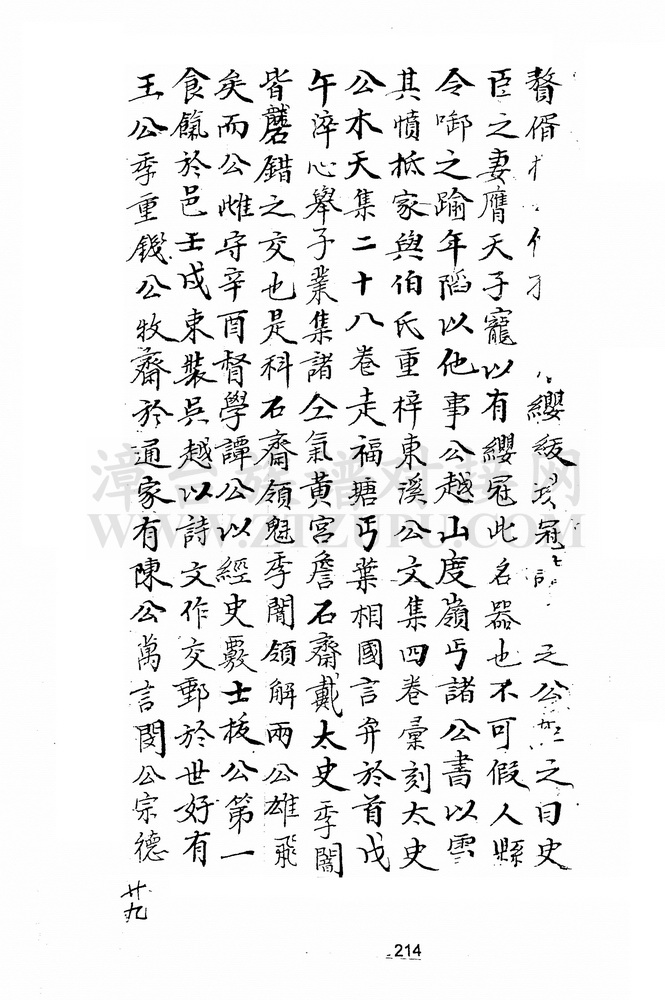 贅偦才 纓緌 冠 之公 之曰史
臣之妻膺天子寵以有纓冠此名器也不可假人縣
令啣之踰年䧟以他事公越山度嶺丐諸公書以雲
其憤抵家與伯氏重梓東溪公文集四卷彙刻太史
公木天集二十八卷走福塘丐葉相國言弁於首戊
午淬心舉子業集諸仝氣黃宮詹石齋戴太史季闇
皆礲錯之交也是科石齋領魁季闇領解兩公雄飛
矣而公雌守辛酉督學譚公以經史覈士拔公第一
食餼於邑壬戌東裝吳越以詩文作交郵於世好有
王公季重錢公牧齋於通家有陳公萬言閔公宗德
廿九
214
漳台族谱对接网
WWW.ZTZUPU.COM